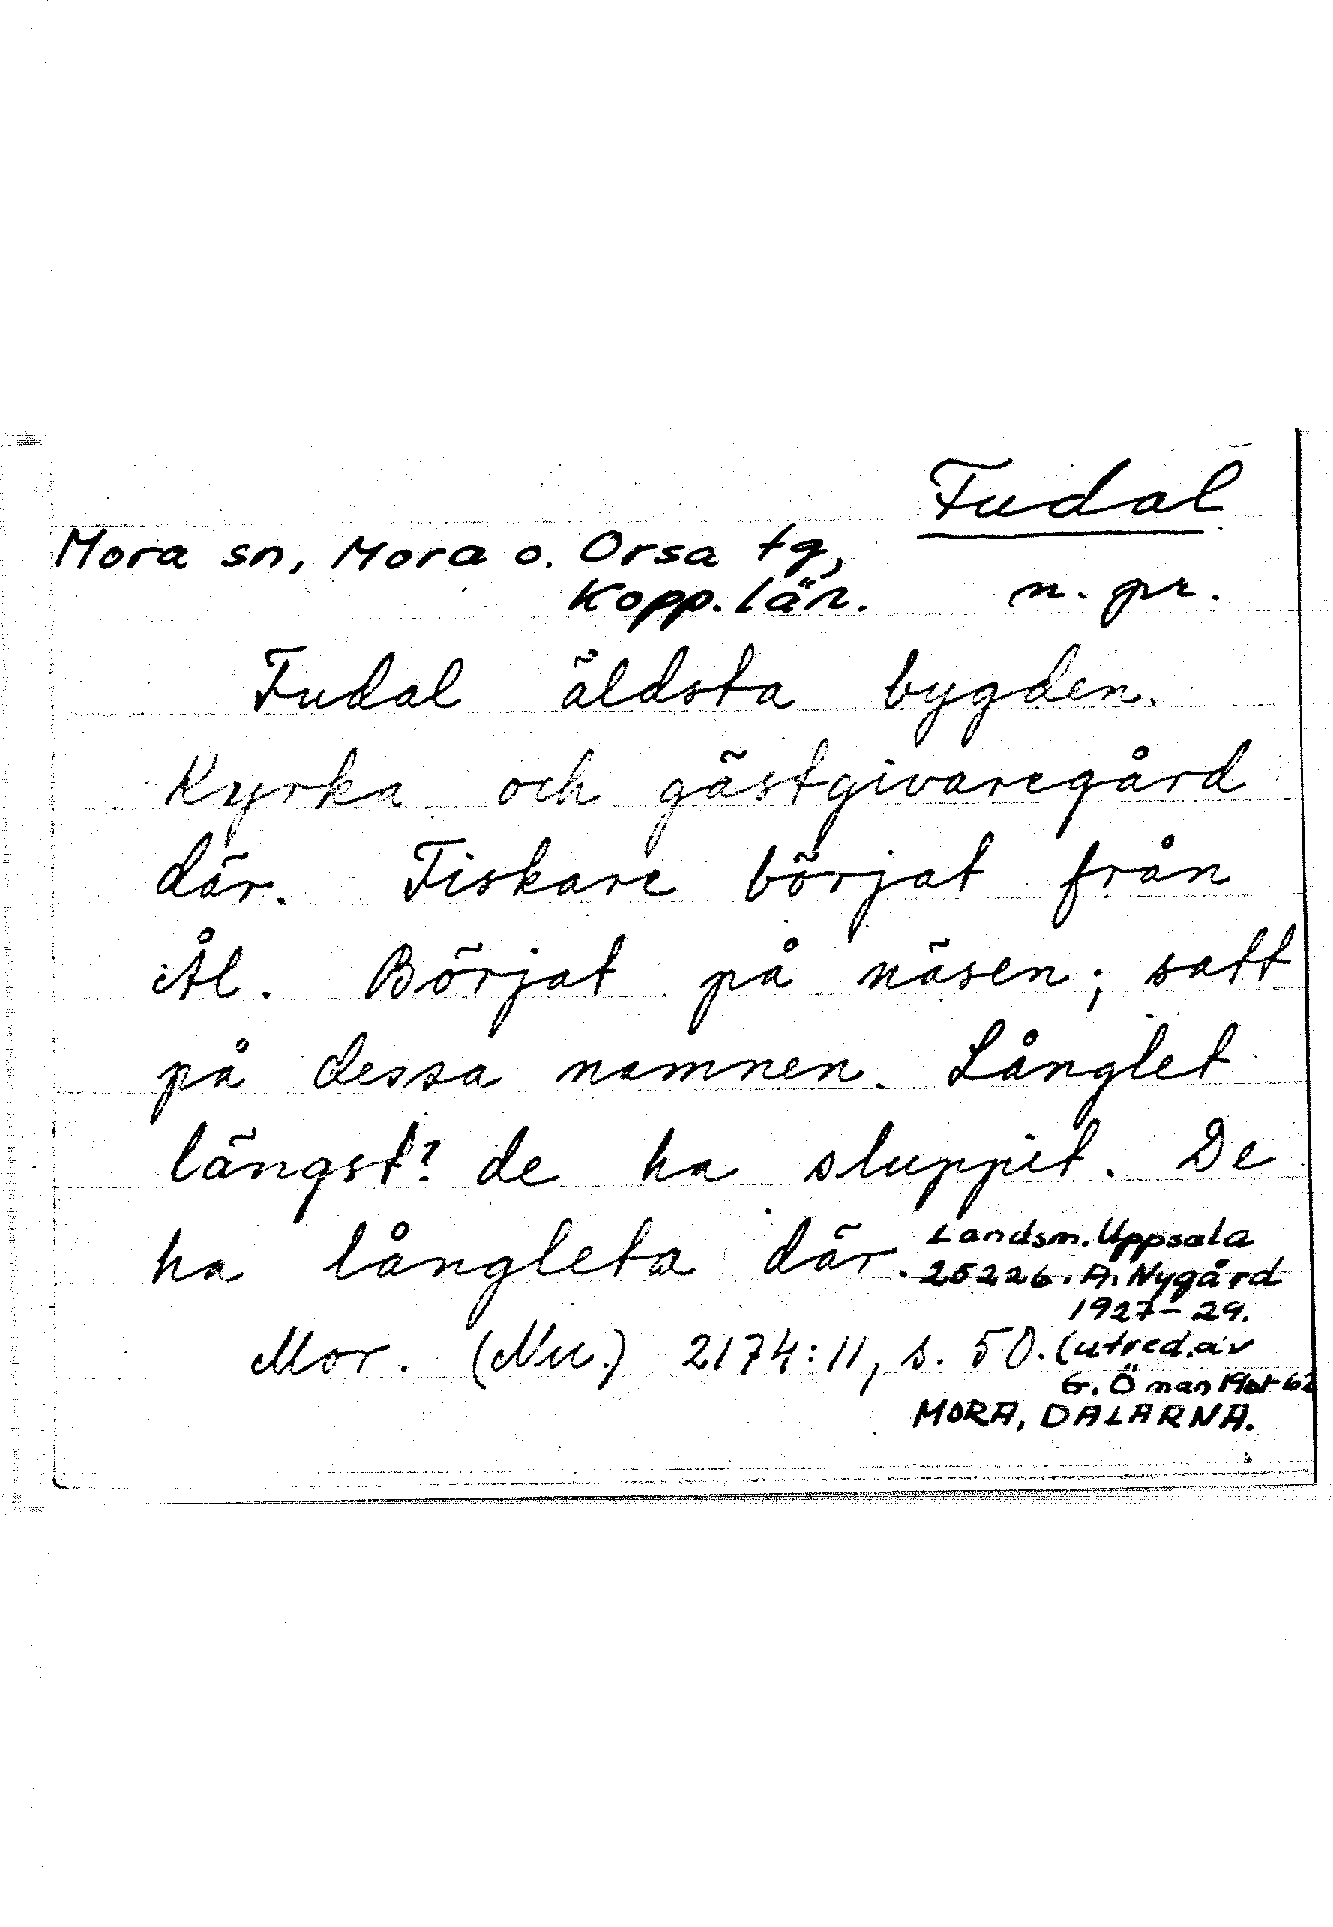 Fudal
Mora sn, Mora o. Orsa tg,
Kopp. län. n. pr.
Fudal äldsta bygden.
Kyrka och gästgivaregård
där. Fiskare börjat från
Ål. Börjat på näsen; satt
på dessa namnen. Långlet
längst? de ha sluppit. De
ha långleta där.
Landsm. Uppsala
25226. A. Nygård
1927-29.
Mor. (Nu.) 2174:11, s. 50. (utred. av
G. Öman 1961-62
MORA, DALARNA.